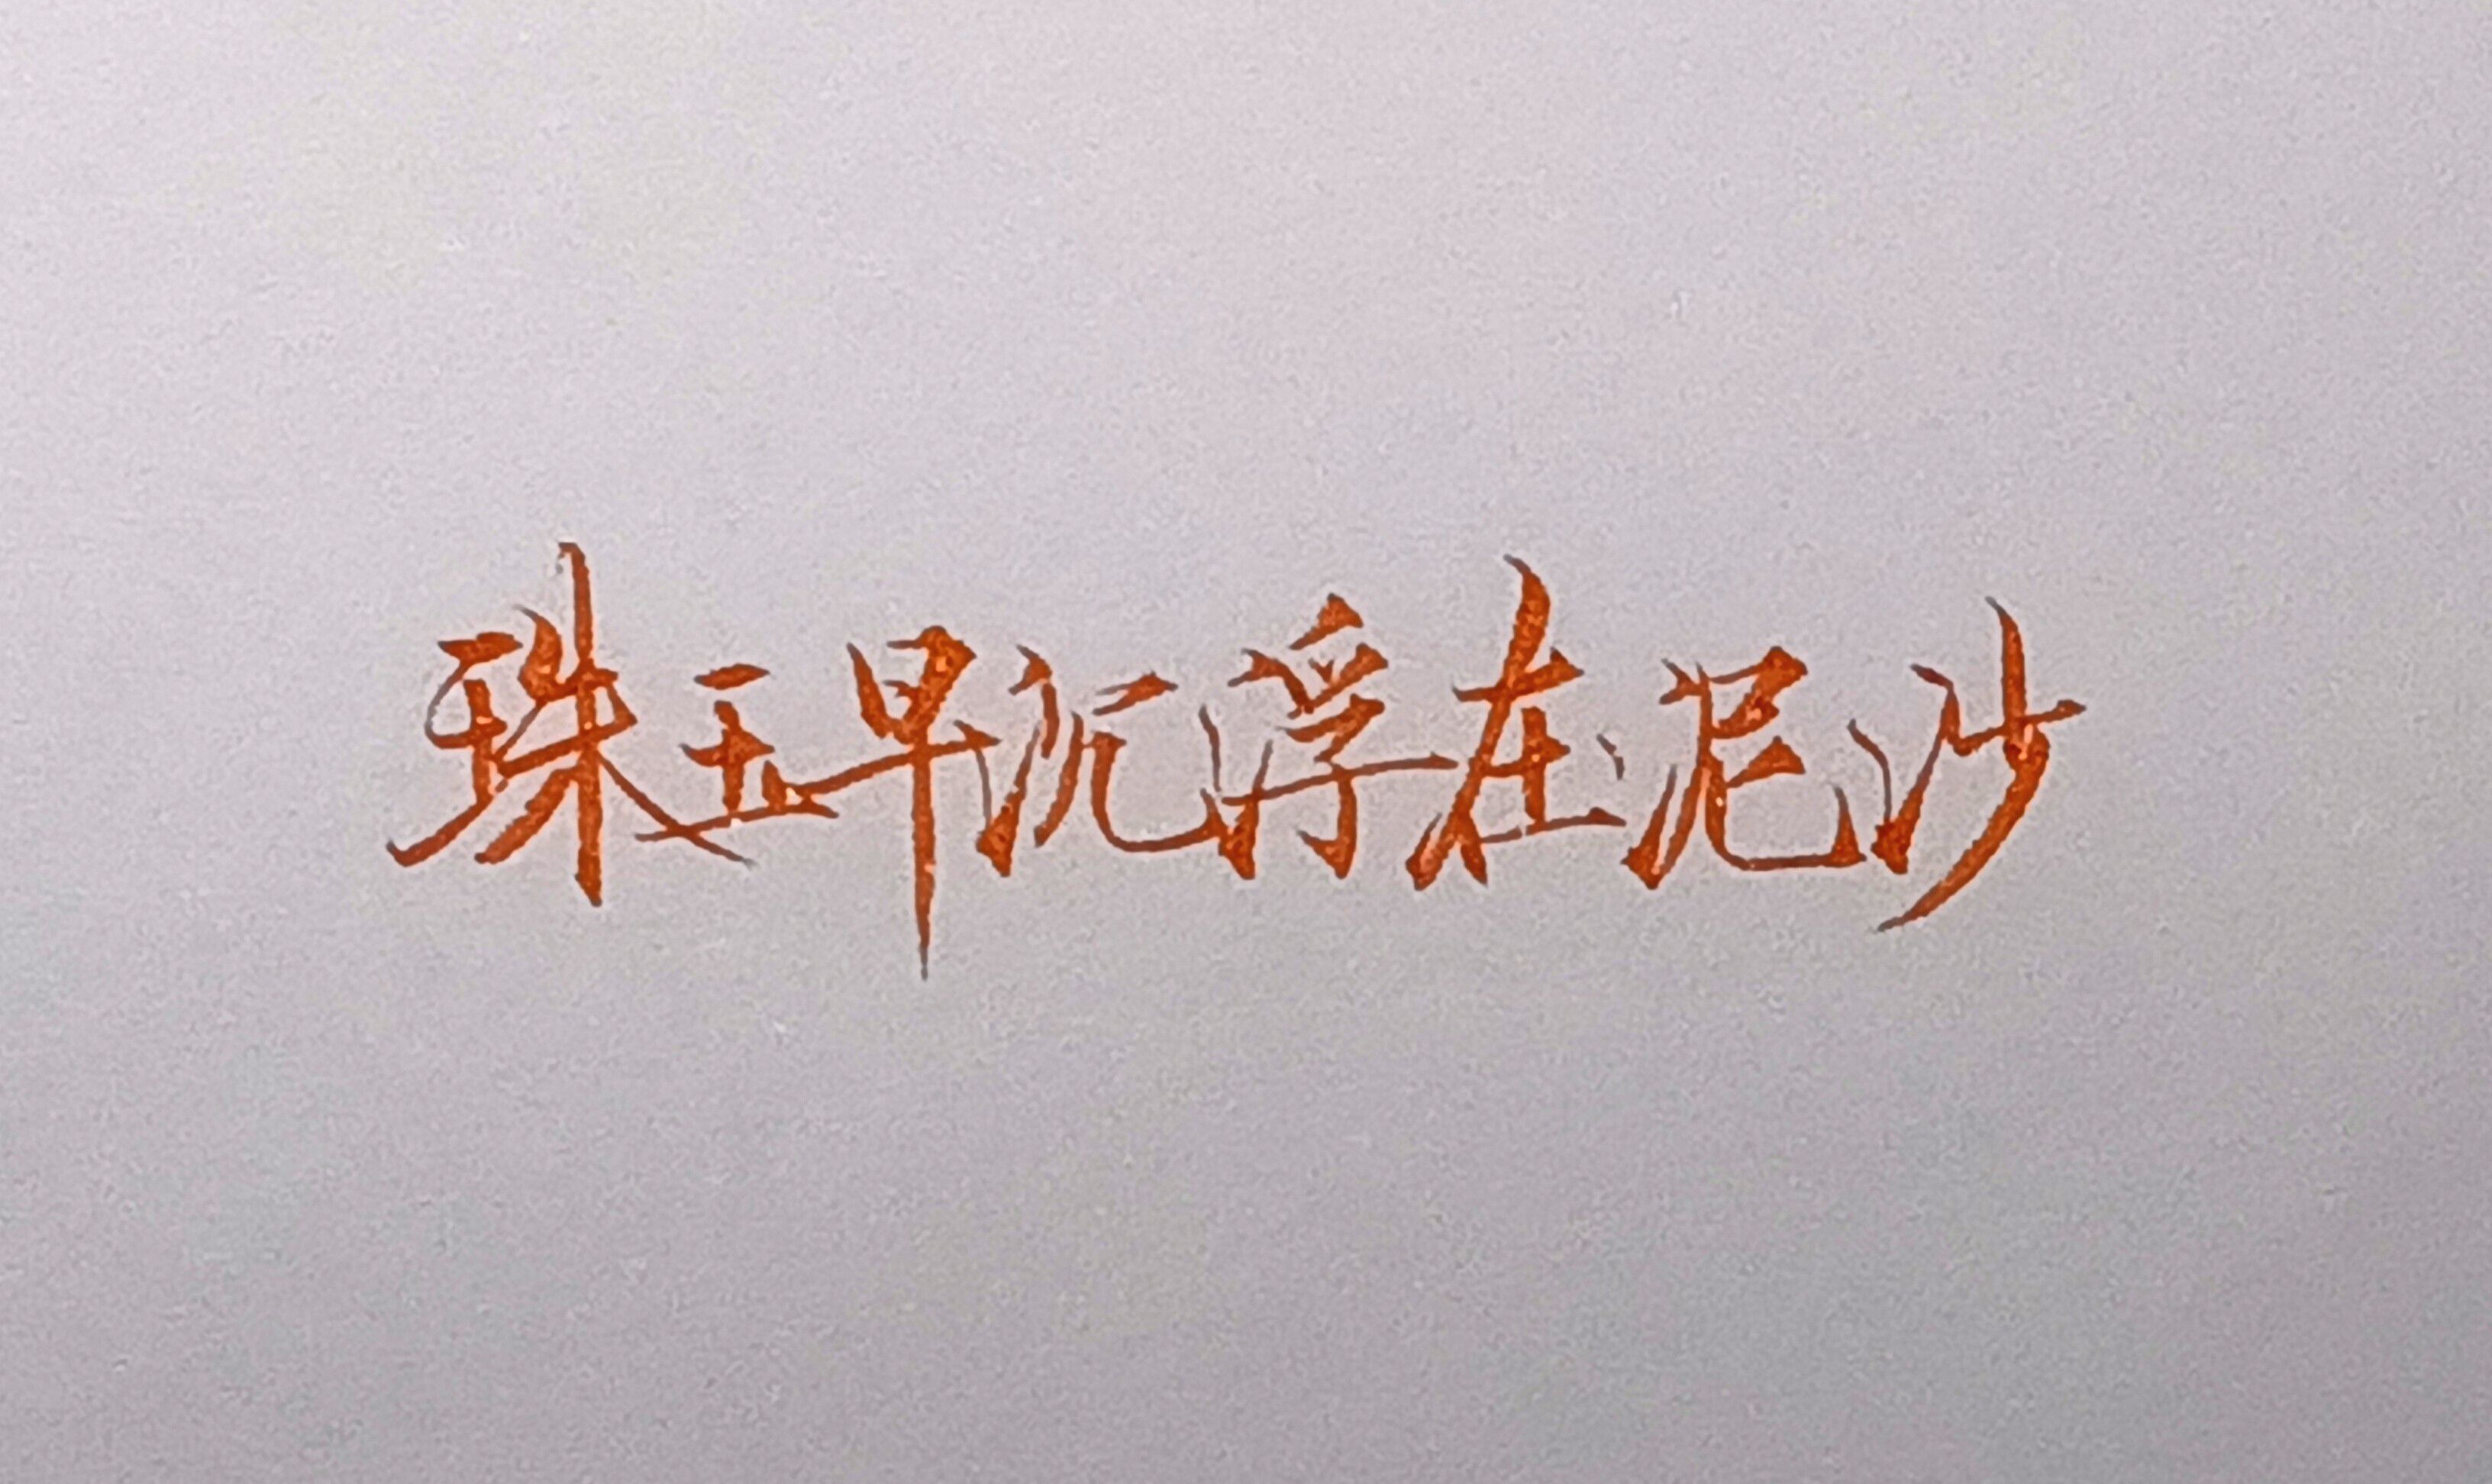 珠玉早沉浮在泥沙